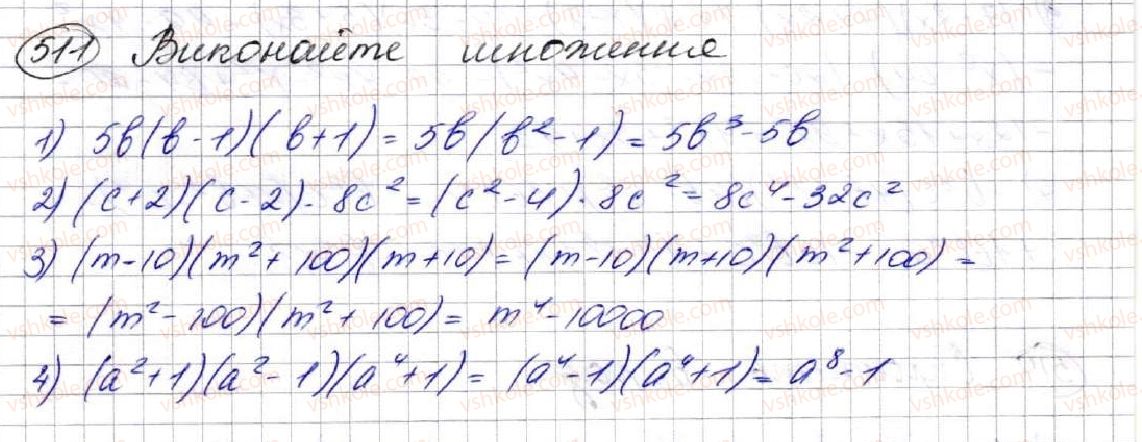 511 Виконайте множення
1) 5b(b-1)(b+1) = 5b(b²-1) = 5b³-5b
2) (c+2)(c-2)·8c² = (c²-4)·8c² = 8c⁴-32c²
3) (m-10)(m²+100)(m+10) = (m-10)(m+10)(m²+100) =
= (m²-100)(m²+100) = m⁴-10000
4) (a²+1)(a²-1)(a⁴+1) = (a⁴-1)(a⁴+1) = a⁸-1